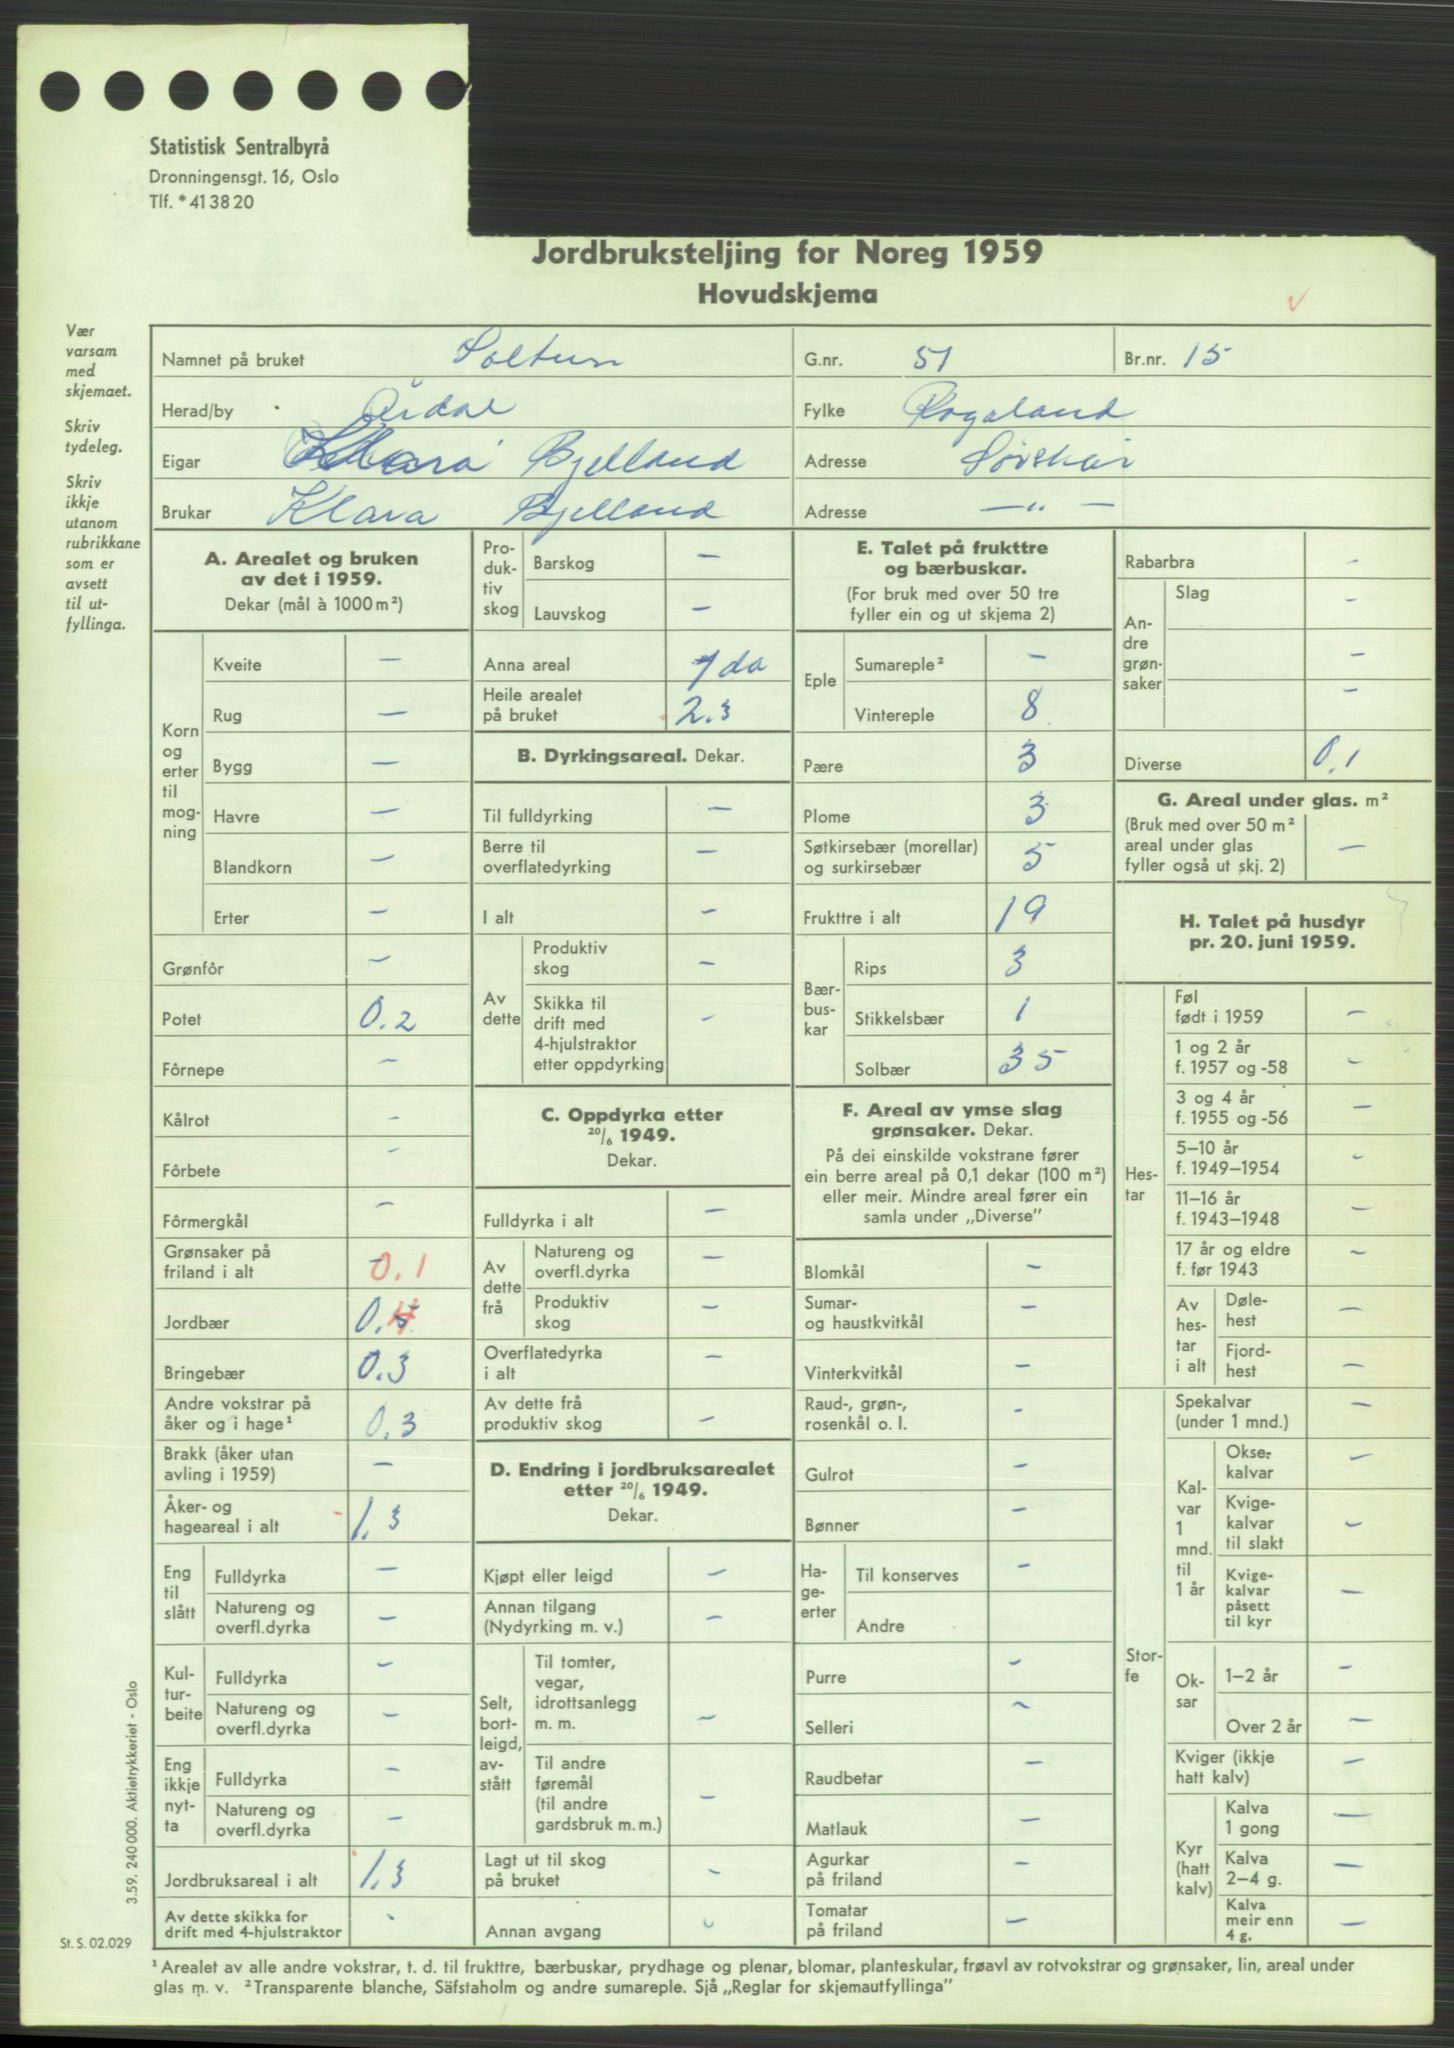 Statistisk Sentralbyrå
Dronningensgt. 16, Oslo
Tlf. * 41 38 20
Jordbruksteljing for Noreg 1959
Hovudskjema
Vær
varsam
med
skjemaet.
Skriv
tydeleg.
Skriv
ikkje
utanom
rubrikkane
som er
avsett
til ut-
fyllinga.
Namnet på bruket Soltun G.nr. 51 Br.nr. 15
Herad/by Årdal Fylke Rogaland
Eigar Klara Bjelland Adresse
Brukar Klara Bjelland Adresse — „ —
A. Arealet og bruken
av det i 1959.
Dekar (mål à 1000 m²)
Korn
og
erter
til
mog-
ning
Kveite —
Rug —
Bygg —
Havre —
Blandkorn —
Erter —
Grønfôr —
Potet 0.2
Fôrnepe —
Kålrot —
Fôrbete —
Fôrmergkål —
Grønsaker på
friland i alt 0.1
Jordbær 0.4
Bringebær 0.3
Andre vokstrar på
åker og i hage¹ 0.3
Brakk (åker utan
avling i 1959) —
Åker- og
hageareal i alt 1.3
Eng
til
slått
Fulldyrka —
Natureng og
overfl.dyrka —
Kul-
tur-
beite
Fulldyrka —
Natureng og
overfl.dyrka —
Eng
ikkje
nyt-
ta
Fulldyrka —
Natureng og
overfl.dyrka —
Jordbruksareal i alt 1.3
Av dette skikka for
drift med 4-hjulstraktor -
Pro-
duk-
tiv
skog
Barskog —
Lauvskog —
Anna areal 1 da
Heile arealet
på bruket 2.3
B. Dyrkingsareal. Dekar.
Til fulldyrking —
Berre til
overflatedyrking —
I alt —
Av
dette
Produktiv
skog —
Skikka til
drift med
4-hjulstraktor
etter oppdyrking —
C. Oppdyrka etter
20/6 1949.
Dekar.
Fulldyrka i alt —
Av
dette
frå
Natureng og
overfl.dyrka —
Produktiv
skog —
Overflatedyrka
i alt —
Av dette frå
produktiv skog —
D. Endring i jordbruksarealet
etter 20/6 1949.
Dekar.
Kjøpt eller leigd —
Annan tilgang
(Nydyrking m. v.) —
Selt,
bort-
leigd,
av-
stått
Til tomter,
vegar,
idrottsanlegg
m. m. —
Til andre
føremål
(til andre
gardsbruk m. m.) —
Lagt ut til skog
på bruket —
Annan avgang —
E. Talet på frukttre
og bærbuskar.
(For bruk med over 50 tre
fyller ein og ut skjema 2)
Eple
Sumareple² —
Vintereple 8
Pære 3
Plome 3
Søtkirsebær (morellar)
og surkirsebær 5
Frukttre i alt 19
Bær-
bus-
kar
Rips 3
Stikkelsbær 1
Solbær 35
F. Areal av ymse slag
grønsaker. Dekar.
På dei einskilde vokstrane fører
ein berre areal på 0,1 dekar (100 m²)
eller meir. Mindre areal fører ein
samla under „Diverse”
Blomkål —
Sumar-
og haustkvitkål —
Vinterkvitkål —
Raud-, grøn-,
rosenkål o. l. -
Gulrot —
Bønner —
Ha-
ge-
erter
Til konserves —
Andre
Purre —
Selleri ~
Raudbetar —
Matlauk —
Agurkar
på friland —
Tomatar
på friland —
Rabarbra -
An-
dre
grøn-
saker
Slag —
—
—
Diverse 0.1
G. Areal under glas. m²
(Bruk med over 50 m²
areal under glas
fyller også ut skj. 2) —
H. Talet på husdyr
pr. 20. juni 1959.
Hes-
tar
Føl
født i 1959 —
1 og 2 år
f. 1957 og -58 —
3 og 4 år
f. 1955 og -56 —
5–10 år
f. 1949–1954 —
11–16 år
f. 1943–1948 —
17 år og eldre
f. før 1943 —
Av
hes-
tar
i alt
Døle-
hest —
Fjord-
hest —
Stor-
fe
Spekalvar
(under 1 mnd.) —
Kal-
var
1
mnd.
til
1 år
Okse-
kalvar —
Kvige-
kalvar
til slakt —
Kvige-
kalvar
påsett
til kyr —
Ok-
sar
1–2 år —
Over 2 år —
Kviger (ikkje
hatt kalv) —
Kyr
(hatt
kalv)
Kalva
1 gong —
Kalva
2–4 g. —
Kalva
meir enn
4 g. —
3.59. 240 000. Aktietrykkeriet - Oslo
St. S. 02.029
¹ Arealet av alle andre vokstrar, t. d. til frukttre, bærbuskar, prydhage og plenar, blomar, planteskular, frøavl av rotvokstrar og grønsaker, lin, areal under
glas m. v. ² Transparente blanche, Säfstaholm og andre sumareple. Sjå „Reglar for skjemautfyllinga”